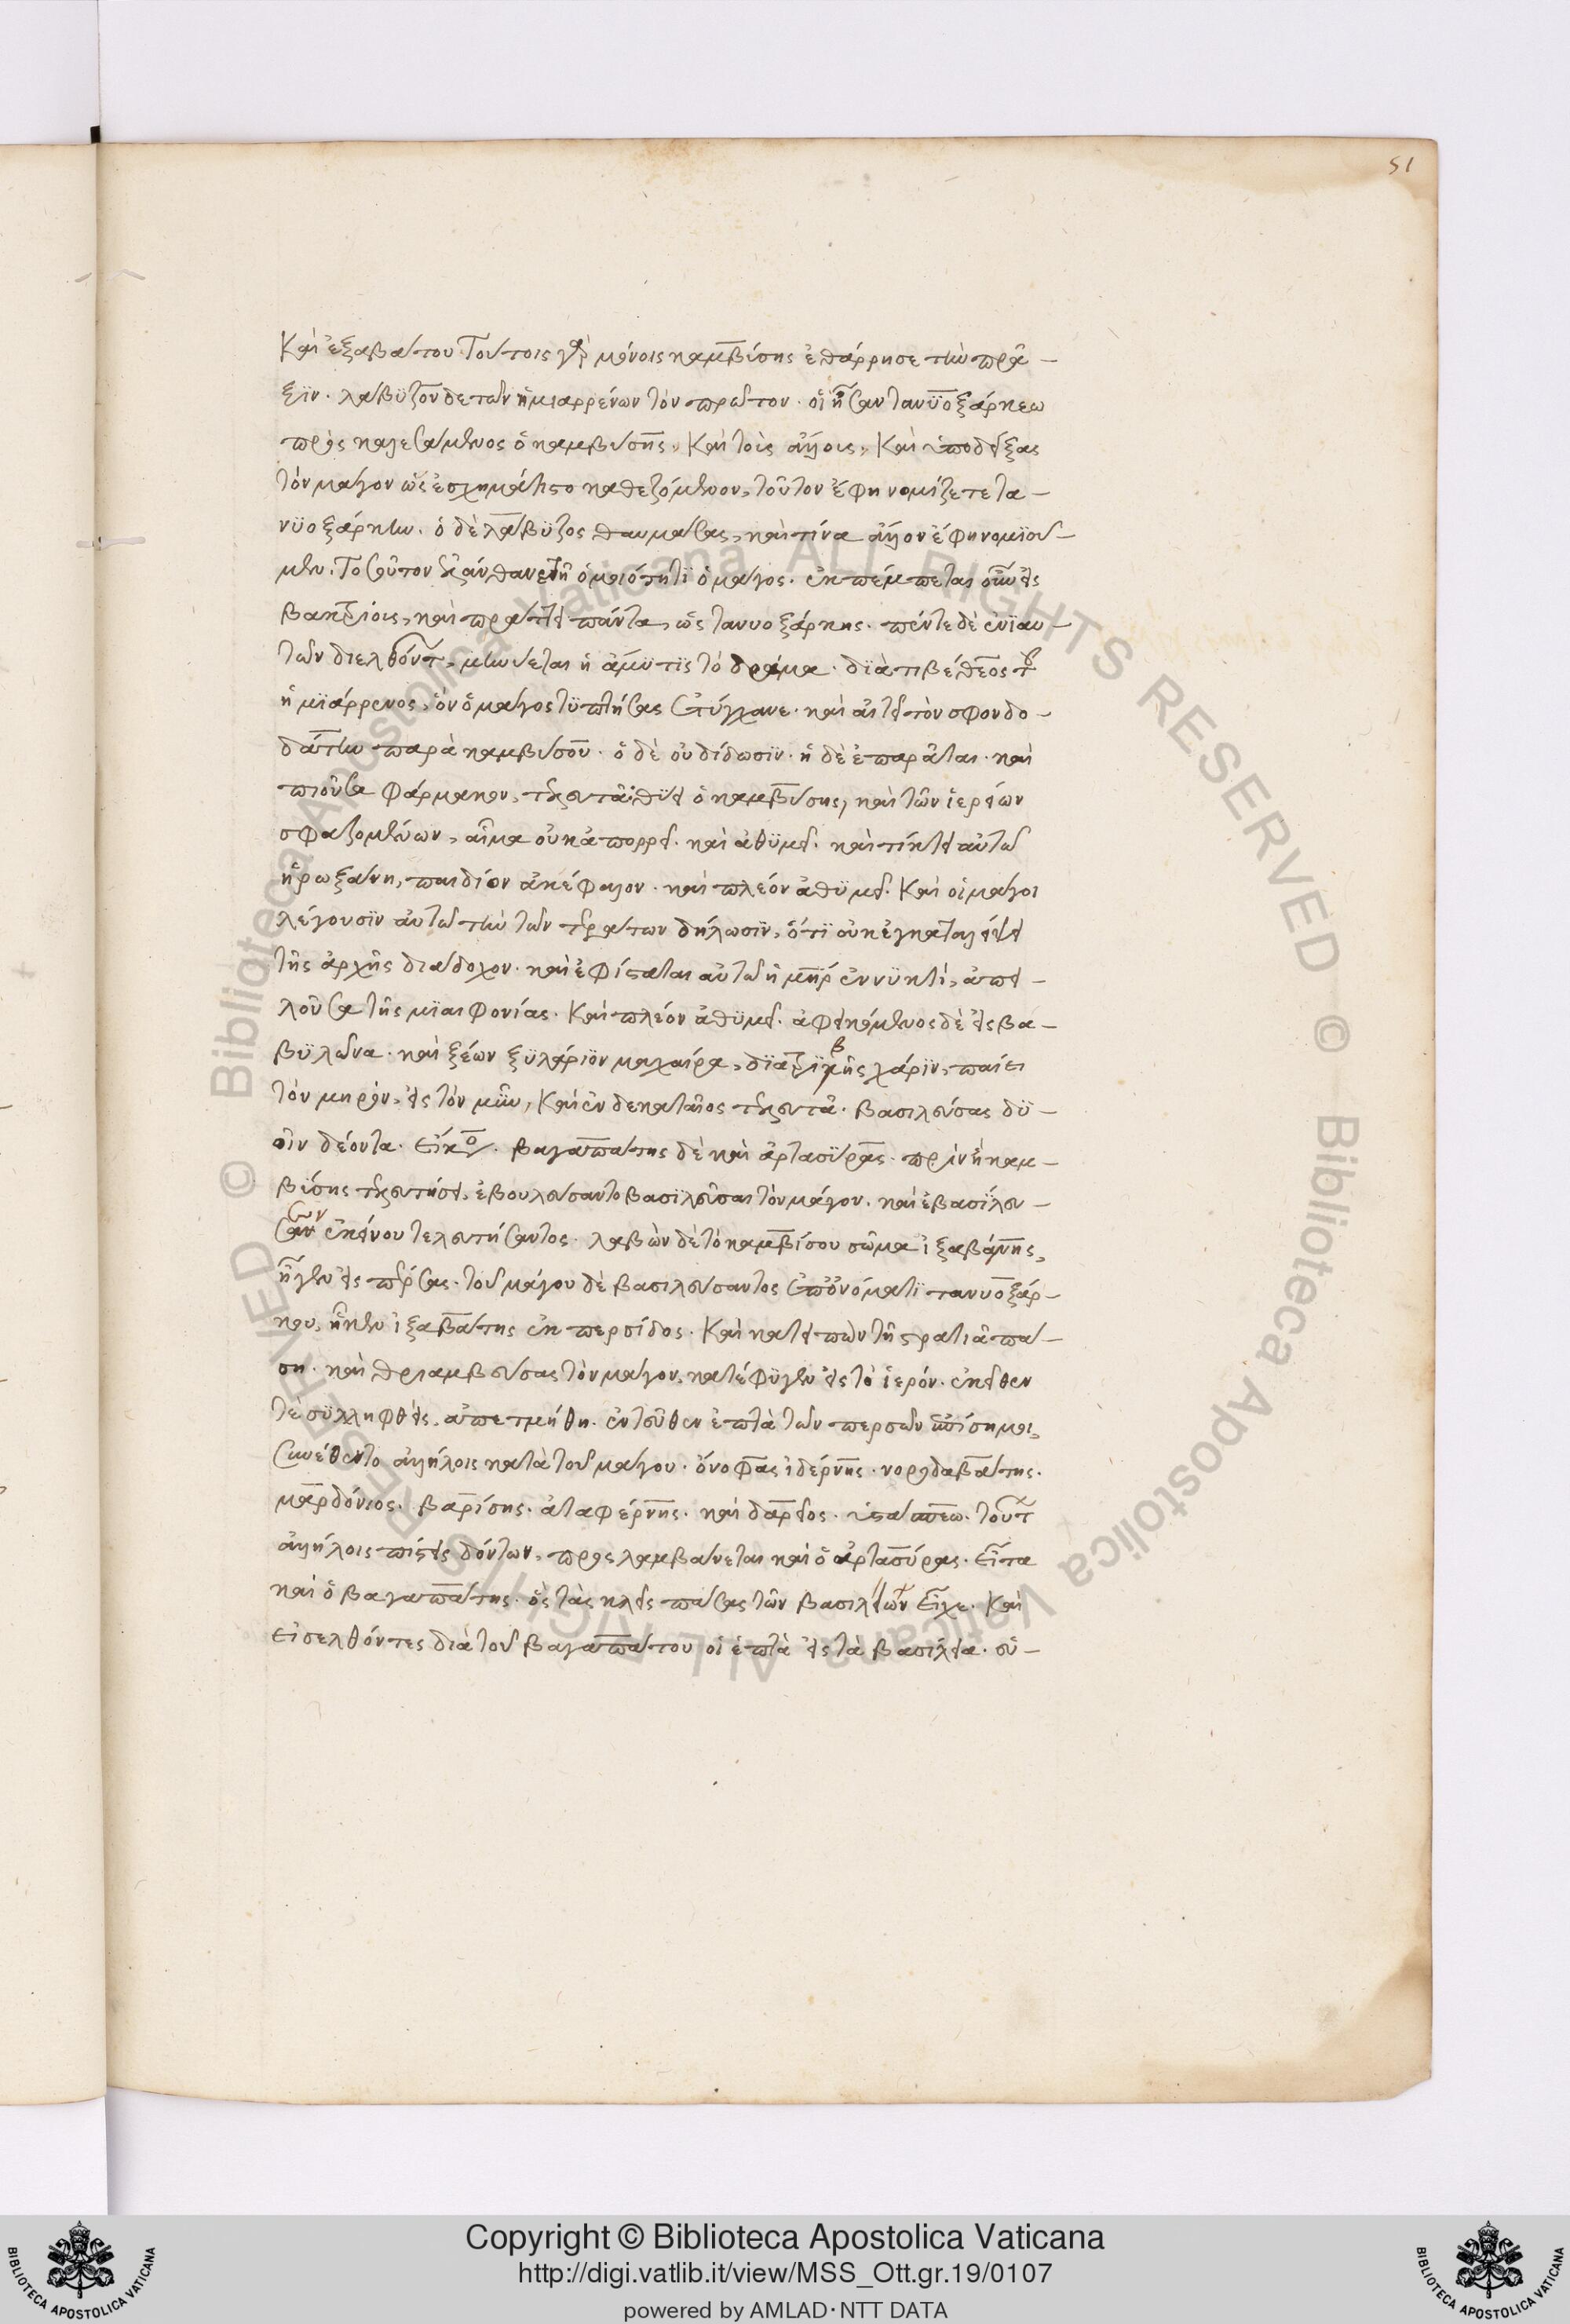 51
Καὶ ἐξαβάτου. Τούτοις γὰρ μόνοις καμβύσης ἐθάρρησε τὴν πρᾶ–
ξϊν. λαβϋζον δὲ τῶν ἡμιαρρένων τὸν πρῶτον. οἳ ἦσαν τανϋοξάρκεω
προσκαλεσάμενος ὁ καμβύσης, Καὶ τοὺς ἄλλους, Καὶ ὑποδείξας
τὸν μάγον ὡς ἐσχημάτιστο καθεζόμενον, τοῦτον ἔφη νομίζετε τα–
νϋοξάρκην. ὁ δὲ λάβϋζος θαυμάσας, καὶ τίνα ἄλλον ἔφη νομϊοῦ–
μεν. Τοσοῦτον ἐλάνθανε τῆ ὁμοιότητϊ ὁ μάγος. ἐκπέμπεται οὖν εἰς
βακτρίους, καὶ πράττει πάντα, ὡς τανυοξάρκης. πέντε δὲ ἐνϊαυ–
τῶν διελθόντων, μηνύεται ἡ ἄμϋτϊς τὸ δρᾶμα. δϊὰ τιβέθεος τοῦ
ἡμϊάρρενος, ὃν ὁ μάγος τϋπτήσας ἐτύγχανε. καὶ αἰτεῖ τὸν σφονδο–
δάτην παρὰ καμβύσου. ὁ δὲ οὐ δίδωσϊν. ἡ δὲ ἐπαρᾶται. καὶ
πιοῦσα φάρμακον, τελευτᾶ. θϋει ὁ καμβύσης, καὶ τῶν ἱερείων
σφαζομένων, αἷμα οὐκ ἀπορρεῖ. καὶ ἀθϋμεῖ. καὶ τίκτει αὐτῶ
ἡ ρωξάνη, παιδίον ἀκέφαλον. καὶ πλέον ἀθϋμεῖ. Καὶ οἱ μάγοι
λέγουσϊν αὐτῶ τὴν τῶν τεράτων δήλωσϊν, ὅτϊ οὐκ ἐγκαταλείψει
τῆς ἀρχῆς διάδοχον. καὶ ἐφίσταται αὐτῶ ἡ μήτηρ ἐν νϋκτὶ, ἀπει–
λοῦσα τῆς μϊαιφονίας. Καὶ πλέον ἀθϋμεῖ. ἀφϊκόμενος δὲ εἰς βα–
βϋλῶνα. καὶ ξέων ξϋλάριϊον μαχαίρα, δϊατρϊβῆς χάρϊν, παίει
τὸν μηρὸν, εἰς τὸν μῦν, Καὶ ἑνδεκαταῖος τελευτᾶ. βασιλεύσας δϋ–
οῖν δέοντα. εἴκοσι. βαγαπάτης δὲ καὶ ἀρτασϋρας. πρὶν ἢ καμ–
βϋσης τελευτήσει, ἐβουλεύσαντο βασϊλεῦσαι τὸν μάγον. καὶ ἐβασϊλευ–
σεν ἐκείνου τελευτήσαντος. λαβὼν δὲ τὸ καμβύσου σῶμα ἰξαβάτης,
ἦγεν εἰς πέρσας. τοῦ μάγου δὲ βασιλεύσαντος ἐπ' ὀνόματϊ τανυοξάρ–
κου, ἧκεν ἰξαβάτης ἐκ περσίδος. Καὶ κατειπὼν τῆ στρατιᾶ πά–
ση. καὶ θριαμβεύσας τὸν μάγον, κατέφϋγεν εἰς τὸ ἱερόν. ἐκεῖθεν
τὲ σϋλληφθεὶς, ἀπετμήθη. ἐντεῦθεν ἑπτὰ τῶν περσῶν ἐπίσημοι,
συνέθεντο ἀλλήλοις κατὰ τοῦ μάγου. ὀνόφας ἰδέρνης. νορονδαβάτης.
μαρδόνιος. βαρίσης. ἀταφέρνης. καὶ δαρεῖος. ὑστάσπεω. τούτων
ἀλλήλοις πίστεις δόντων, προσλαμβάνεται καὶ ὁ ἀρτασύρας. εἶτα
καὶ ὁ βαγαπάτης. ὃς τὰς κλεῖς πάσας τῶν βασιλείων εἶχε. Καὶ
εἰσελθόντες διὰ τοῦ βαγαπάτου οἱ ἑπτὰ εἰς τὰ βασίλεια. εὑ–
Copyright © Biblioteca Apostolica Vaticana
http://digi.vatlib.it/view/MSS_Ott.gr.19/0107
powered by AMLAD·NTT DATA